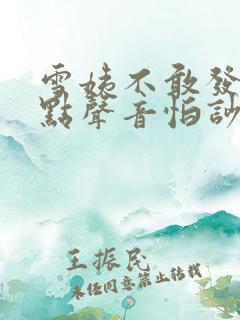 雪姨不敢發
點聲音怕訬
王振民
未经同意禁止转载